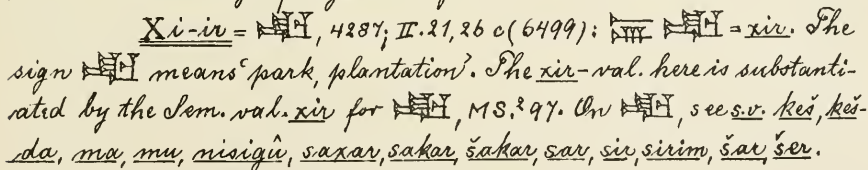 Xi-ir = 𒊬, 4287; II. 21, 26 c (6499): 𒊬 = xir. The
sign 𒊬 means ‘park, plantation’. The xir-val. here is substanti-
ated by the Sem. val. xir for 𒊬, MS.² 97. On 𒊬, see s.v. keš, keš-
da, ma, mu, nisigû, saxar, sakar, šakar, sar, sir, sirim, šar, šer.